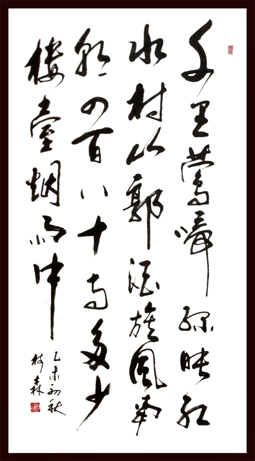 千里莺啼绿映红
水村山郭酒旗風南
朝四百八十寺多少
樓臺烟雨中
乙未初秋
森